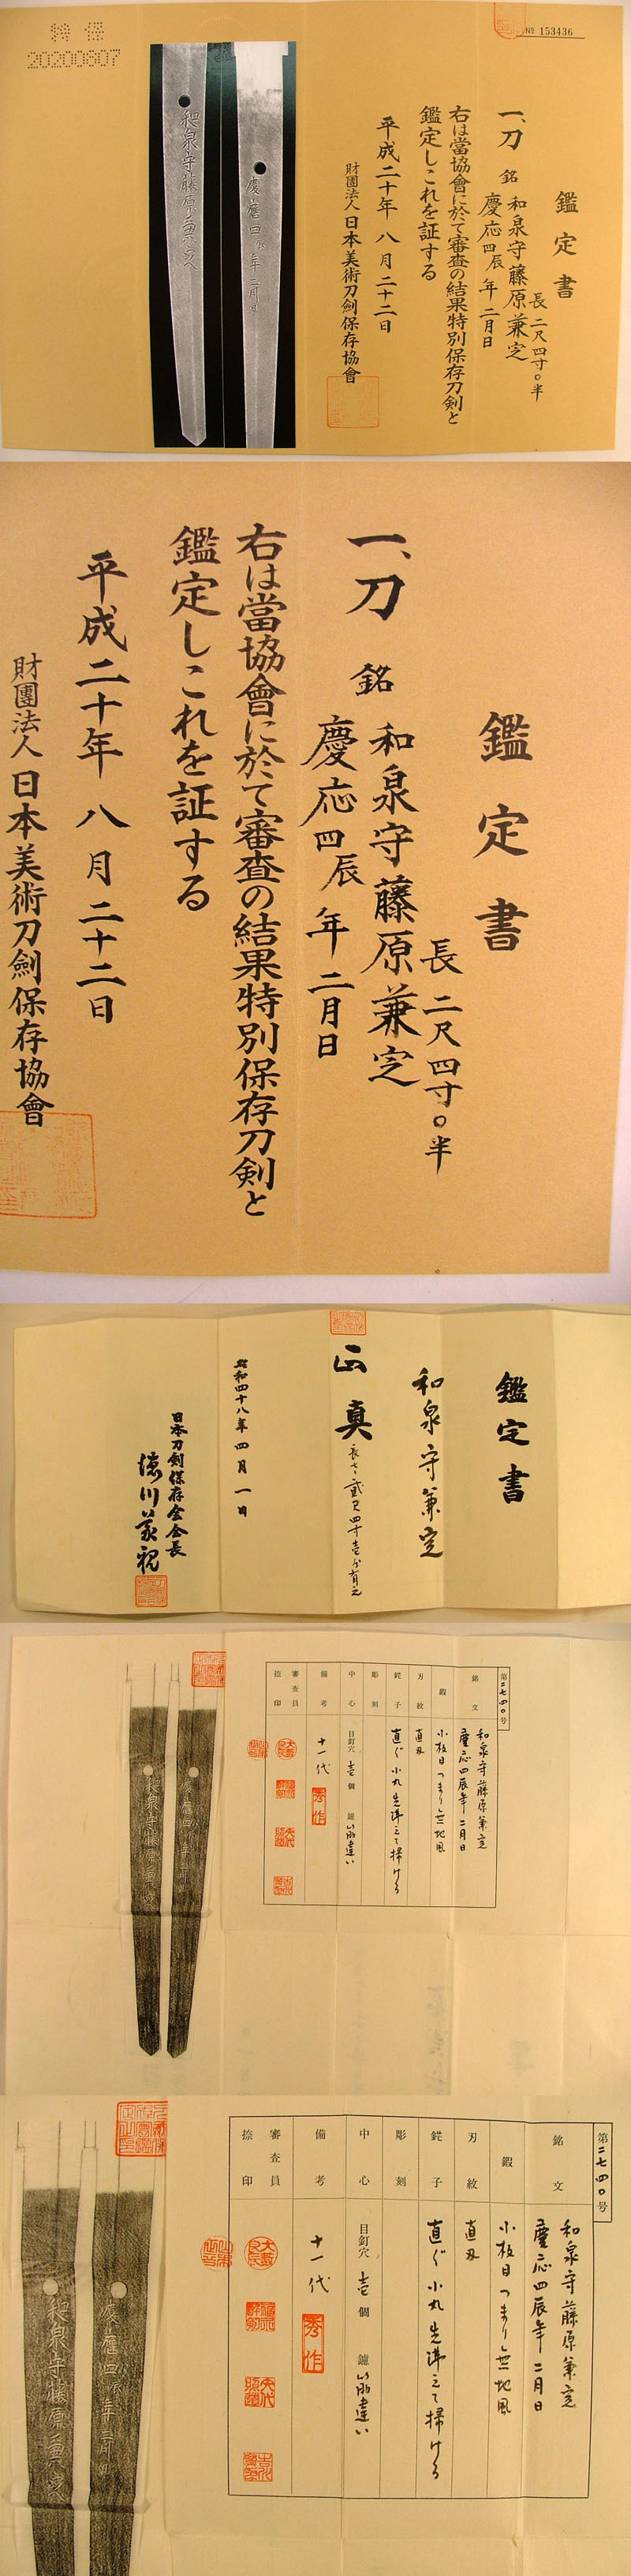 特保
20200607
№ 153436
鑑定書
長 二尺四寸〇半
一、刀 銘 和泉守藤原兼定
慶応四辰年二月日
右は當協會に於て審査の結果特別保存刀剣と
鑑定しこれを証する
平成二十年八月二十二日
財團法人日本美術刀劍保存協會
慶應四辰年二月日
和泉守藤原兼定
鑑定書
長 二尺四寸〇半
一、刀 銘 和泉守藤原兼定
慶応四辰年二月日
右は當協會に於て審査の結果特別保存刀剣と
鑑定しこれを証する
平成二十年八月二十二日
財團法人日本美術刀劍保存協會
鑑定書
和泉守兼定
正真
長さ 貮尺四寸壱分有之
昭和四十八年四月一日
日本刀剣保存会会長
徳川義親
第二七四〇号
銘文
和泉守藤原兼定
慶応四辰年二月日
鍜
小板目つまり無地風
刃紋
直刃
鋩子
直ぐ小丸先沸えて掃ける
彫刻
中心
目釘穴 壱個 鑢 筋違い
備考
十一代
秀作
審査員
捺印
慶應四辰年二月日
和泉守藤原兼定
第二七四〇号
銘文
和泉守藤原兼定
慶応四辰年二月日
鍜
小板目つまり無地風
刃紋
直刃
鋩子
直ぐ小丸先沸えて掃ける
彫刻
中心
目釘穴 壱個 鑢 筋違い
備考
十一代
秀作
審査員
捺印
慶應四辰年二月日
和泉守藤原兼定